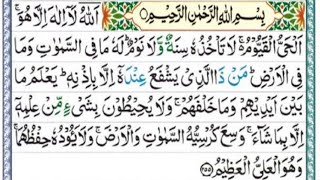 بِسْمِ اللّٰهِ الرَّحْمٰنِ الرَّحِيْمِ ۝ اَللّٰهُ لَاۤ اِلٰهَ اِلَّا هُوَ ۚ
اَلْحَيُّ الْقَيُّوْمُ ۚ لَا تَاْخُذُهٗ سِنَةٌ وَّلَا نَوْمٌ ؕ لَهٗ مَا فِى السَّمٰوٰتِ وَمَا
فِى الْاَرْضِ ؕ مَنْ ذَا الَّذِىْ يَشْفَعُ عِنْدَهٗۤ اِلَّا بِاِذْنِهٖ ؕ يَعْلَمُ مَا
بَيْنَ اَيْدِيْهِمْ وَمَا خَلْفَهُمْ ۚ وَلَا يُحِيْطُوْنَ بِشَىْءٍ مِّنْ عِلْمِهٖۤ
اِلَّا بِمَا شَآءَ ۚ وَسِعَ كُرْسِيُّهُ السَّمٰوٰتِ وَالْاَرْضَ ۚ وَلَا يَئُوْدُهٗ حِفْظُهُمَا ۚ
وَهُوَ الْعَلِىُّ الْعَظِيْمُ ۝۲۵۵